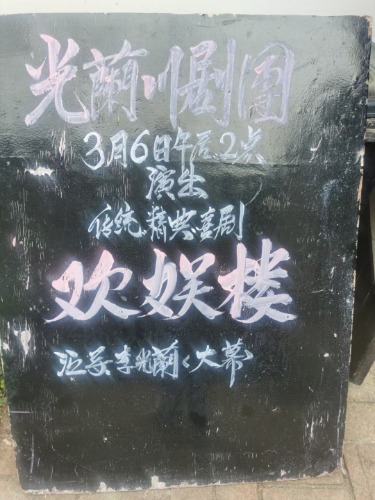 光蘭川剧團
3月6日午后2点
演出
传统精典喜剧
欢娱楼
导李光蘭〈大幕〉